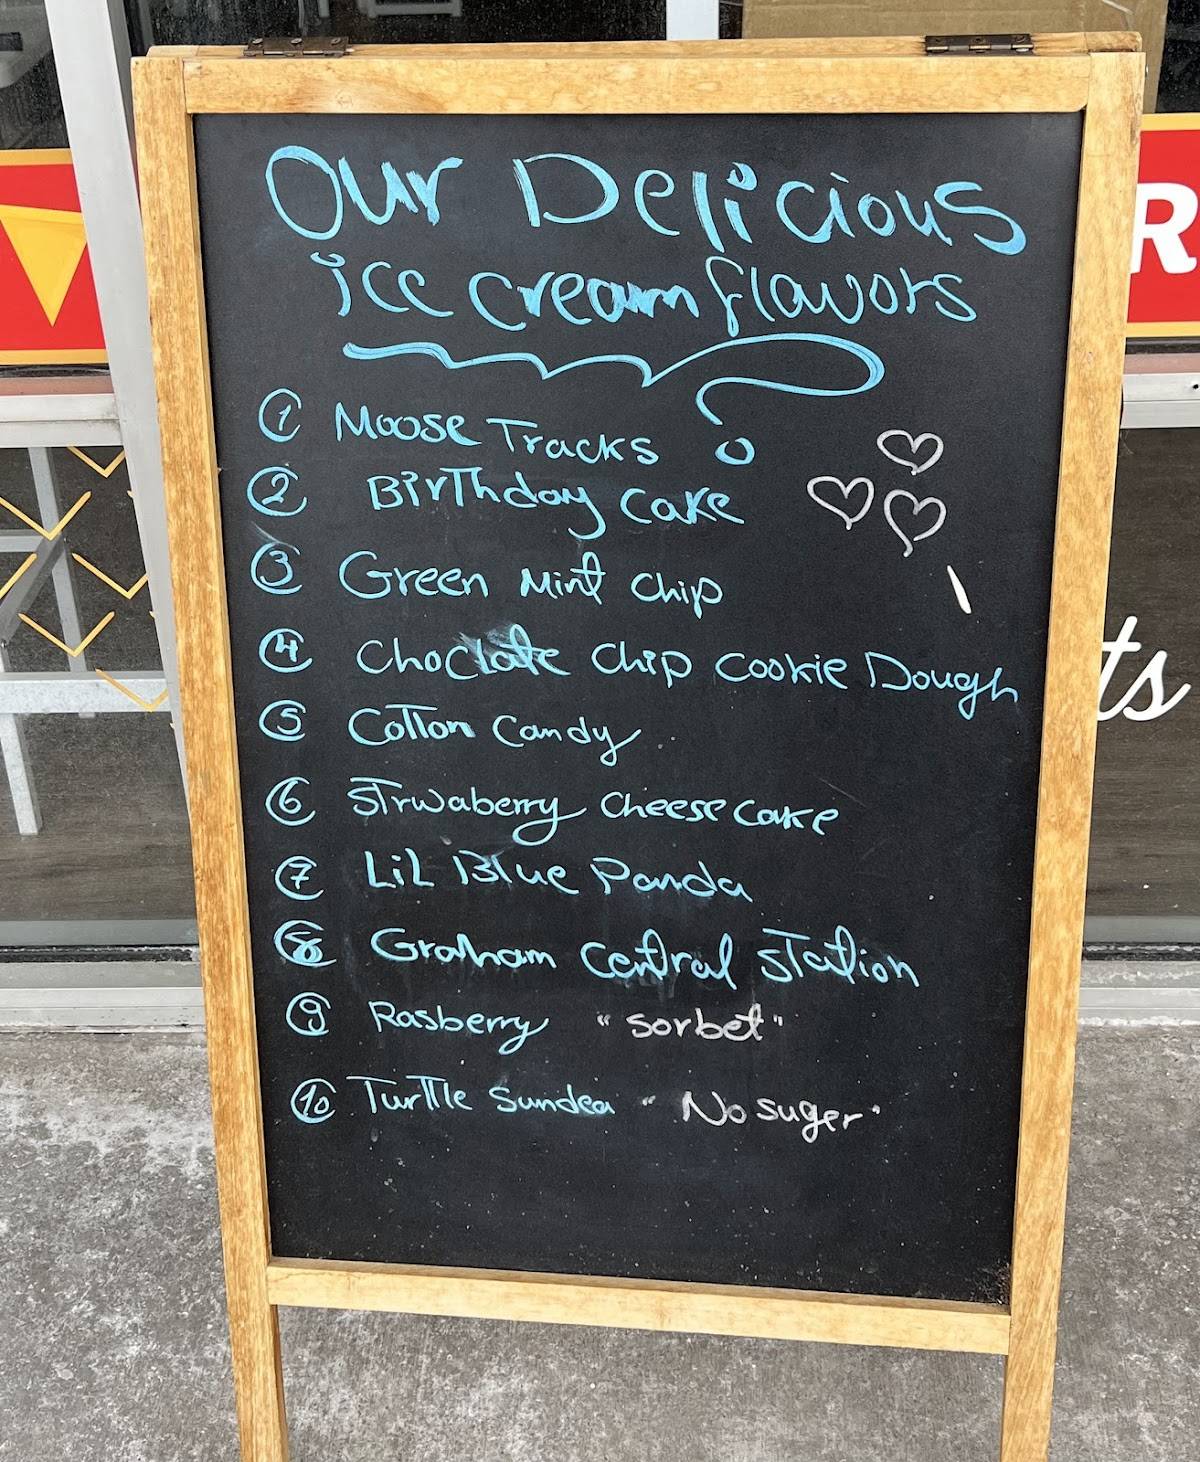 Our Delicious
ice cream flavors
1 Moose Tracks
2 Birthday Cake
3 Green Mint Chip
4 Choclate Chip Cookie Dough
5 Cotton Candy
6 Strwaberry Cheese Cake
7 LiL Blue Panda
8 Graham Central Station
9 Rasberry "Sorbet"
10 Turtle Sundea "No suger"
R
ts